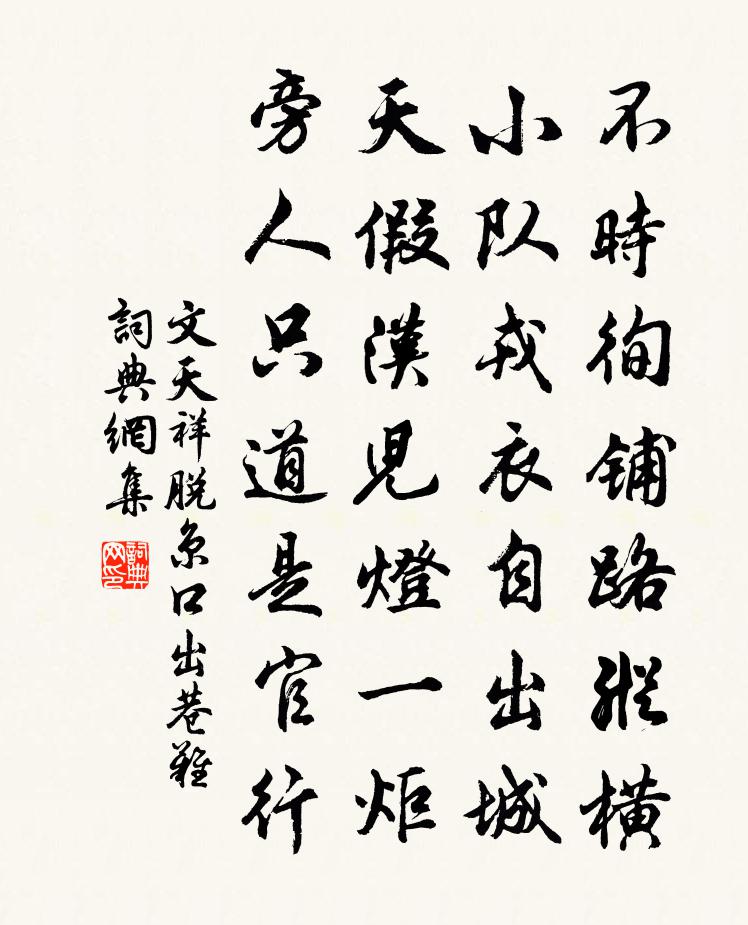 不時徇鋪路縱橫
小队戎衣自出城
天假漢児燈一炬
旁人只道是官行
文天祥脱京口出巷難
詞典網集
詞典网印